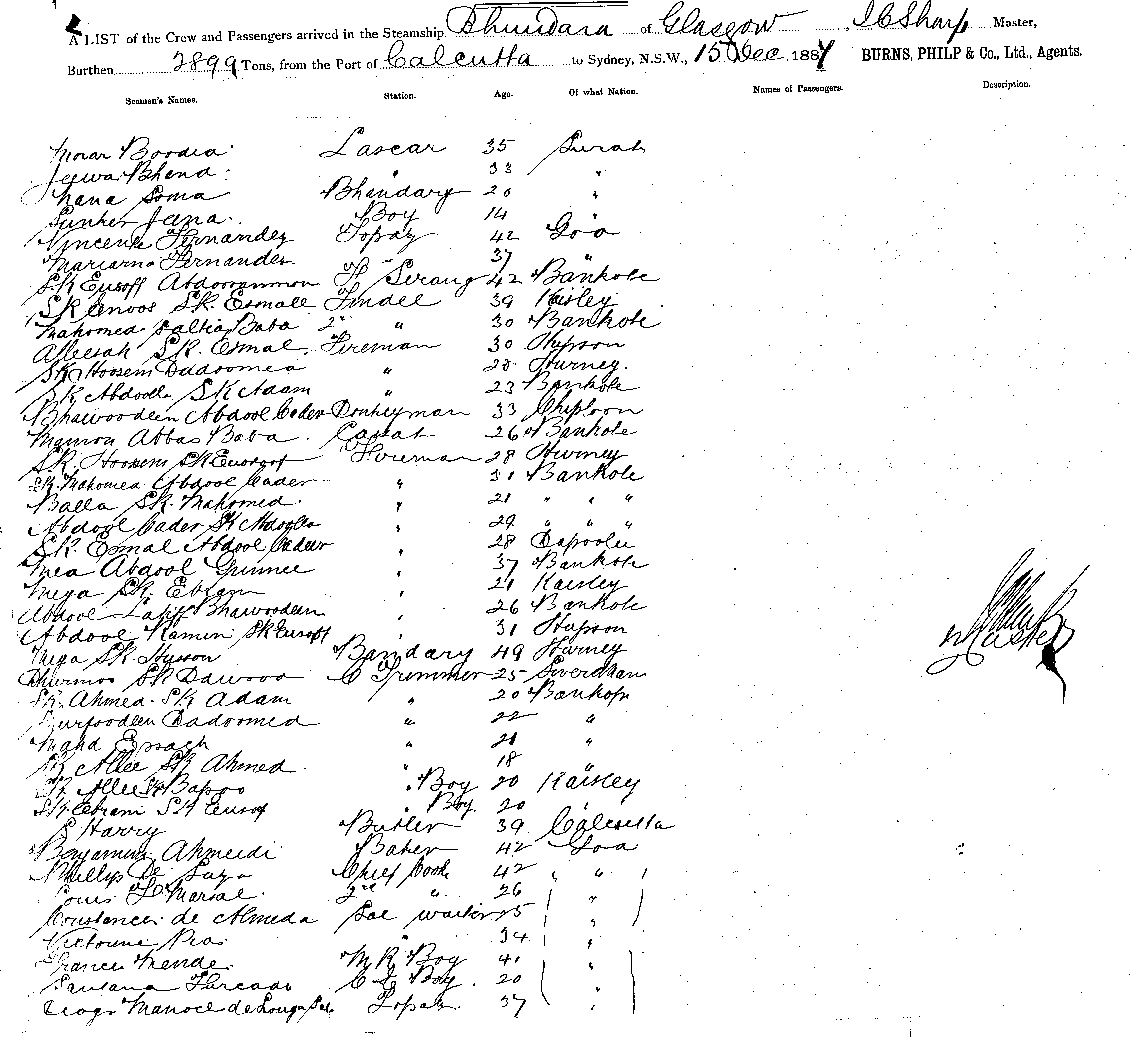 A LIST of the Crew and Passengers arrived in the Steamship Bhundara of Glasgow Sharp Master,
Burthen 2899 Tons, from the Port of Calcutta to Sydney, N.S.W., 15 Dec 188 BURNS, PHILP & Co., Ltd., Agents.
Seamen's Names. Station. Age. Of what Nation. Names of Passengers. Description.
Morar Boodia Lascar 35 Surat
Jeewa Bhend " 33 "
Soma Bhandary 20 "
Sunker Jeena Boy 14 "
Vincente Fernandez Topaz 42 Goa
Mariarno Fernandez " 37 "
SK Eusoff Abdooranmon Serang 42 Bankote
SK Oenoos SK. Esmall Tindel 39 Kaisley
Mahomed Baba 2" " 30 Bankote
SK. Esmal Fireman 30
SK Hoosem Dadoomea " 28 Hurney
SK Abdoolla SK Adam " 23 Bankote
Bhawoodeen Abdool Cader Donkeyman 33 Chiploon
Mamon Abbas Baba Cassat 26 Bankote
SK. Hoosem SK Eusoof Fireman 28 Hurney
SK Mahomed Abdool Cader " 31 Bankote
Balla SK. Mahomed " 21 " " "
Abdool Cader SK Abdoolla " 29 " " "
SK. Esmal Abdool Cader " 28 Dapoolie
Mea Abdool Gunnee " 37 Bankote
Meya SK. Ebram " 21 Kaisley
Abdool Latiff Bhawoodeen " 26 Bankote
Abdool Ramin SK Eusoff " 31
Meya SK Husson Bandary 49 Hurney
SK Dawood C Trimmer 25
SK. Ahmed SK Adam " 20
Dadoomed " 22 "
Mahd " 21 "
SK Allee SK Ahmed " 18 "
SK Allee SK Bapoo " Boy 20 Kaisley
SK Ebram SK Eusoof " Boy 20 "
S Harry Butler 39 Calcutta
Benjamin Baker 42 Goa
Phillip De Chief Cook 42 " "
Louis 2nd " 26 "
Constancis de Almeda Sal waiter 25 "
" 34 "
Francis Mende M R Boy 41 "
Santana Boy 20 "
Manoel de Topaz 37 "
Master